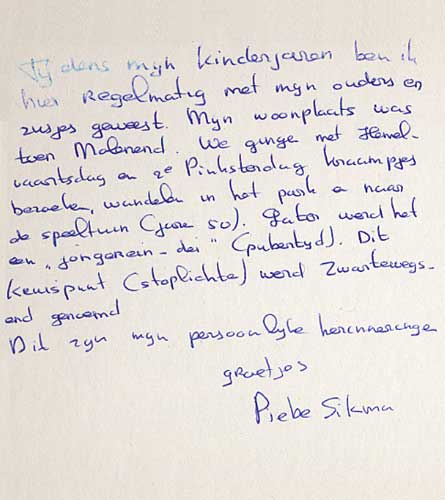 Tijdens mijn kinderjaren ben ik
hier regelmatig met mijn ouders en
zusjes geweest. Mijn woonplaats was
toen Molenend. We ginge met Hemel-
vaartsdag en 2e Pinksterdag kraampjes
bezoeken, wandelen in het park en naar
de speeltuin (jare 50). Later werd het
een "jongerein-dei" (pubertijd). Dit
kruispunt (stoplichte) werd Zwartewegs-
end genoemd
Dit zijn mijn persoonlijke herinneringe
groetjes
Piebe Sikma